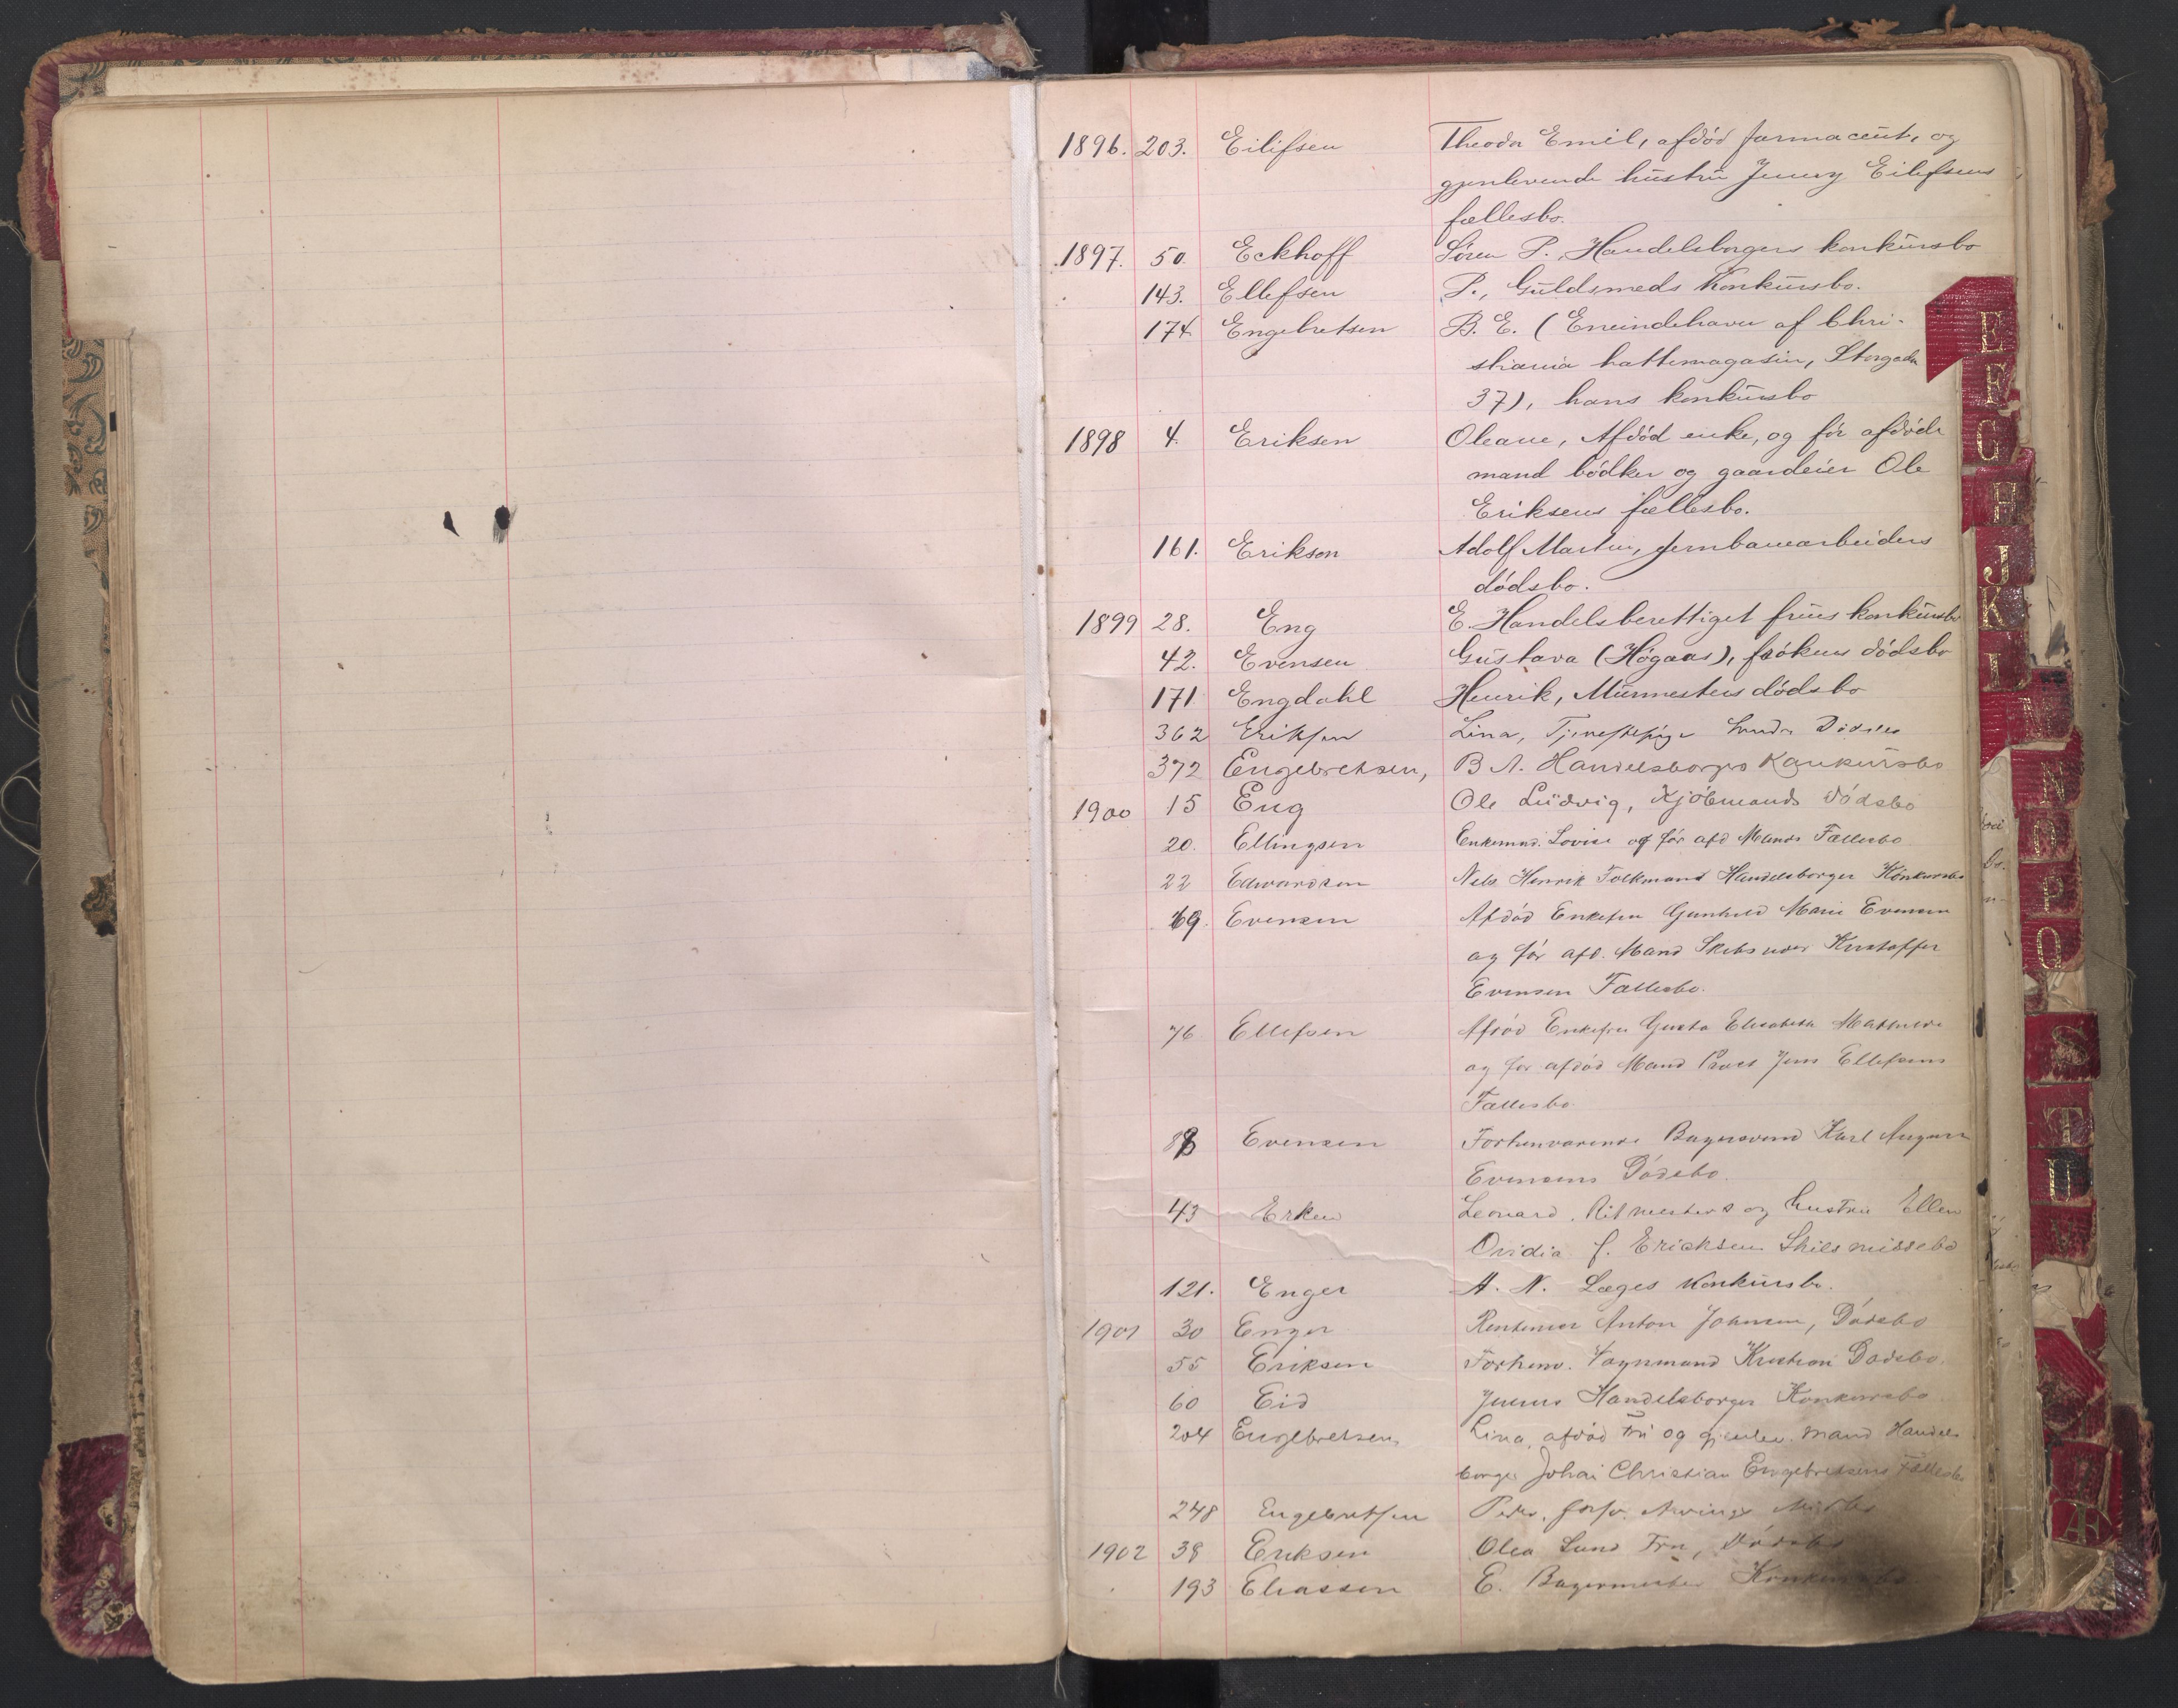 1896. 203. Eilifsen Theodor Emil, afdød farmaceut, og
gjenlevende hustru Jenny Eilifsens
fællesbo.
1897. 50. Eckhoff Søren P., Handelsborgers konkursbo
143. Ellefsen P., Guldsmeds Konkursbo.
174. Engebretsen B. E. (Eneindehaver af Chri-
stiania hattemagasin, Storgaden
37), hans konkursbo
1898 4. Eriksen Oleane, Afdød enke, og før afdøde
mand bødker og gaardeier Ole
Eriksens fællesbo.
161. Eriksen Adolf Martin, Jernbanearbeiders
dødsbo.
1899 28. Eng E. Handelsberettiget frues konkursbo
42. Evensen Gustava (Høgaas), frøkens dødsbo
171 Engdahl Henrik, Murmesters dødsbo
362 Eriksen Lina, Tjenestepige
372 Engebretsen, B A. Handelsborgers Konkursbo
1900 15 Eng Ole Ludvig, Kjøbmands Dødsbo
20. Ellingsen Lovise og før afd Mands Fællesbo
22 Edwardsen Nels Henrik Folkmand Handelsborger Konkursbo
69. Evensen Afdød Enkefru Gunhild Marie Evensen
og før afd. Mand Kristoffer
Evensen Fællesbo.
76 Ellefsen Afdød Enkefru Gusta Elisabeth Mathilde
og før afdød Mand Jens Ellefsens
Fællesbo.
88 Evensen Forhenværende Bagersvend Karl August
Evensens Dødsbo.
43 Erken Leonard, Ritmesters og hustru Ellen
Ovidia f. Ericksen Skilsmissebo
121. Enger A. N. Læges Konkursbo.
1901 30 Enger Rentenier Anton Johnsen, Dødsbo
55 Eriksen Forhenv. Vognmand Kristian Dødsbo.
60 Eid Handelsborger Konkursbo
204 Engebretsen Lina, afdød Fru og gjenlev. mand Handels
borger Johan Christian Engebretsens Fællesbo
248 Engebretsen Peder,
1902 38 Eriksen Olea Lund Fru, Dødsbo
193 Eliassen E. Bagermester Konkursbo
E
F
G
H
J
K
L
M
N
O
P
Q
S
T
U
V
Æ